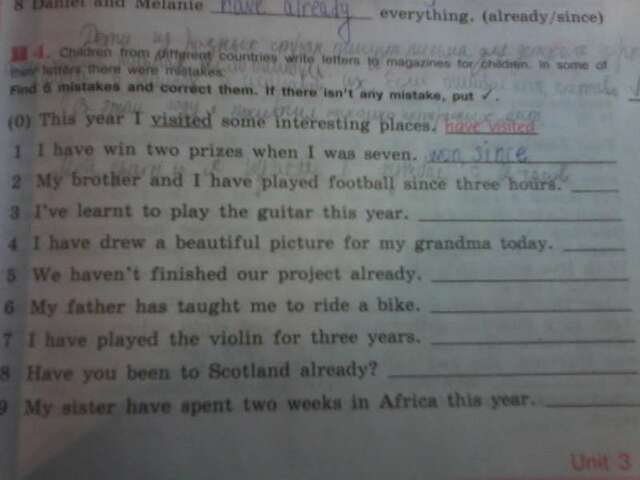 8 Daniel and Melanie have already everything. (already/since)
4. Children from different countries write letters to magazines for children. In some of
their letters there were mistakes.
Find 6 mistakes and correct them. If there isn't any mistake, put ✓.
(0) This year I visited some interesting places. have visited
1 I have win two prizes when I was seven. won since
2 My brother and I have played football since three hours.
3 I've learnt to play the guitar this year.
4 I have drew a beautiful picture for my grandma today.
5 We haven't finished our project already.
6 My father has taught me to ride a bike.
7 I have played the violin for three years.
8 Have you been to Scotland already?
9 My sister have spent two weeks in Africa this year.
Unit 3